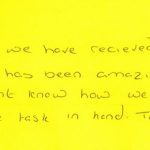 we have recieved
has been amazi
nt know how we
e task in hand. T